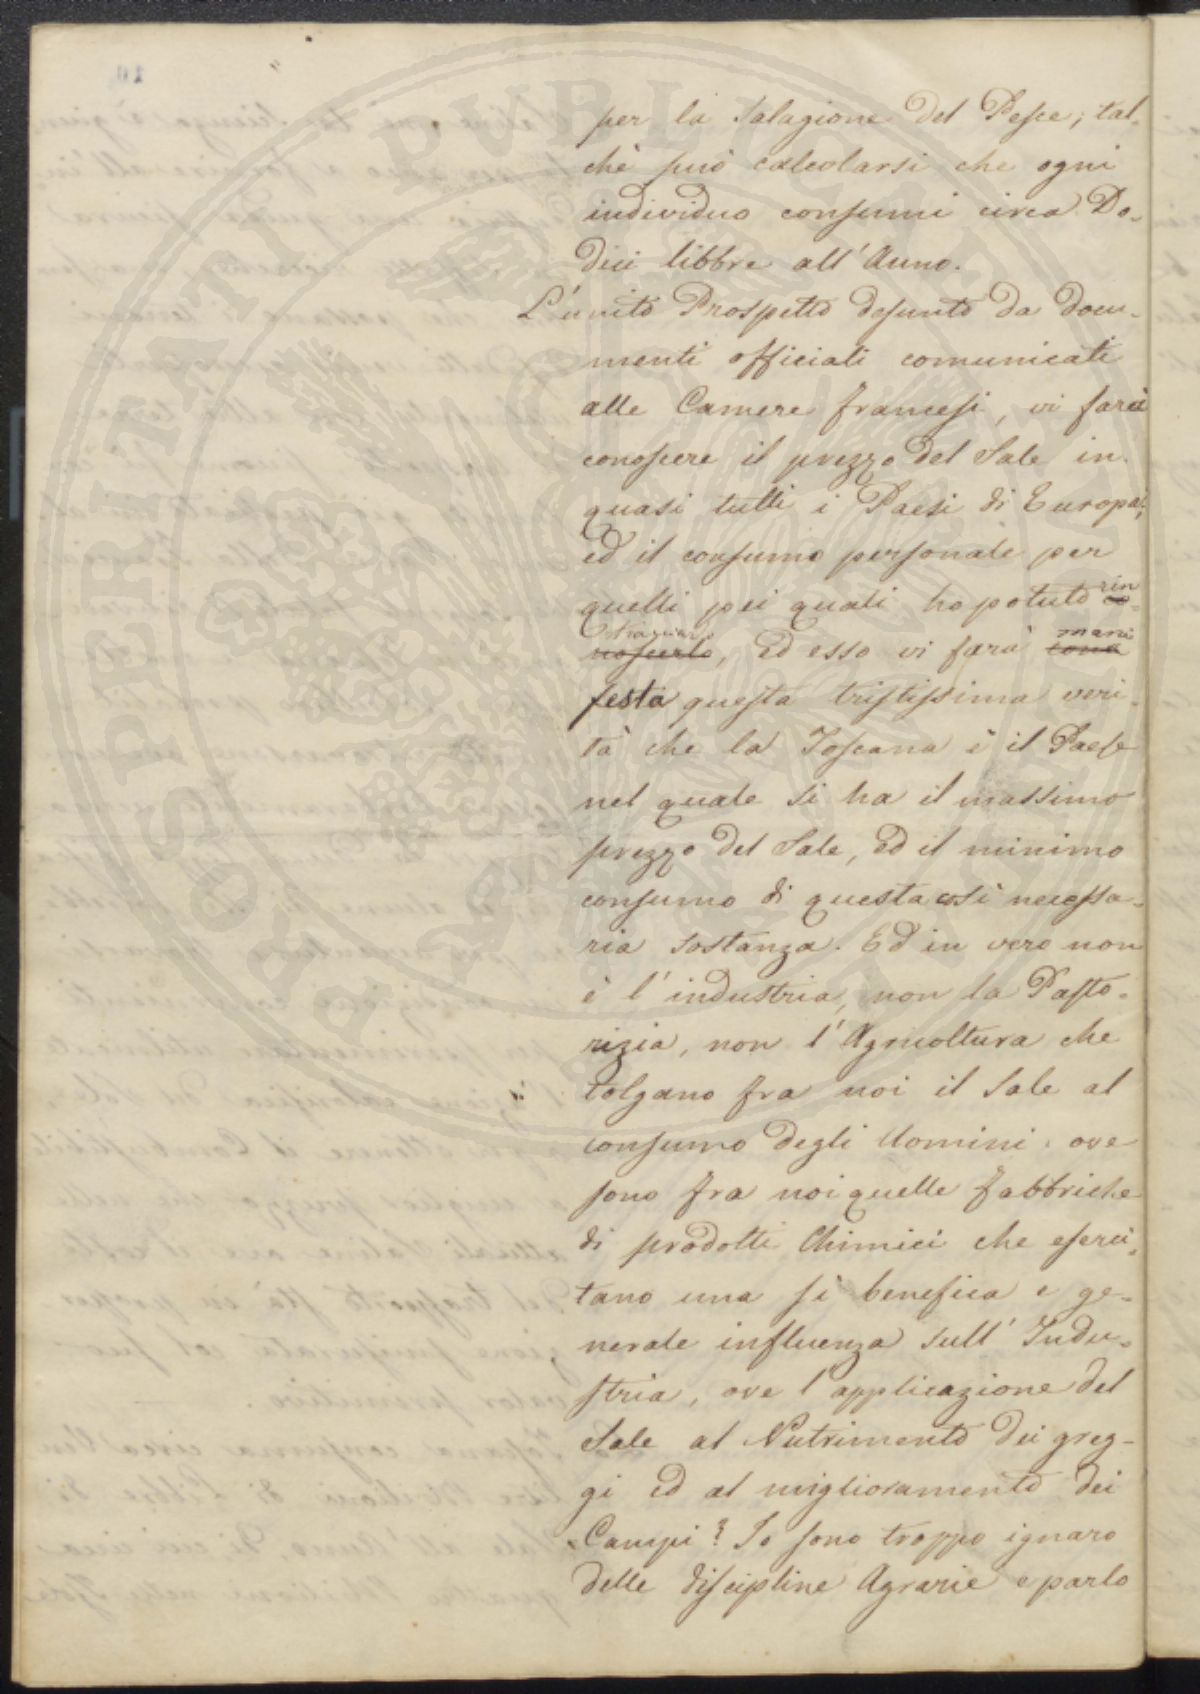 per la Salagione del Pesce; tal-
chè può calcolarsi che ogni
individuo consumi circa Do-
dici libbre all'Anno.
L'unito Prospetto desunto da docu-
menti officiali comunicati
alle Camere francesi, vi farà
conoscere il prezzo del Sale in
quasi tutti i Paesi di Europa;
ed il consumo personale per
quelli pei quali ho potuto rin
tracciarlo, ed esso vi farà mani
festa questa tristissima veri-
tà che la Toscana è il Paese
nel quale si ha il massimo
prezzo del Sale, ed il minimo
consumo di questa così necessa-
ria sostanza. Ed in vero non
è l'industria, non la Pasto-
rizia, non l'Agricoltura che
tolgano fra noi il Sale al
consumo degli Uomini: ove
sono fra noi quelle fabbriche
di prodotti Chimici che eserci-
tano una sì benefica e ge-
nerale influenza sull'Indu-
stria, ove l'applicazione del
Sale al Nutrimento dei greg-
gi ed al miglioramento dei
Campi? Io sono troppo ignaro
delle discipline Agrarie e parlo
PROSPERITATI PVBLICAE